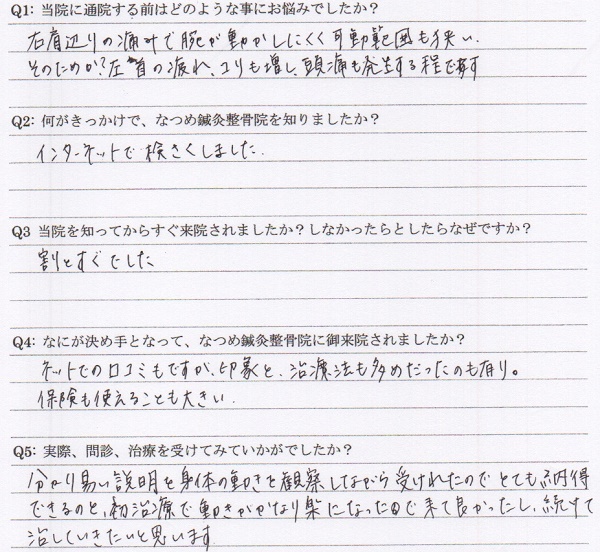 Q1: 当院に通院する前はどのような事にお悩みでしたか?
右肩辺りの痛みで腕が動かしにくく可動範囲も狭い.
そのためか?左首の疲れ、コリも増し、頭痛も発生する程です
Q2: 何がきっかけで、なつめ鍼灸整骨院を知りましたか?
インターネットで検さくしました.
Q3 当院を知ってからすぐ来院されましたか?しなかったらとしたらなぜですか?
割とすぐでした
Q4: なにが決め手となって、なつめ鍼灸整骨院に御来院されましたか?
ネットでの口コミもですが、印象と、治療法も多めだったのも有り。
保険も使えることも大きい.
Q5: 実際、問診、治療を受けてみていかがでしたか?
分かり易い説明を身体の動きを観察しながら受けれたのでとても納得
できるのと、初治療で動きがかなり楽になったので来て良かったし、続けて
治していきたいと思います.